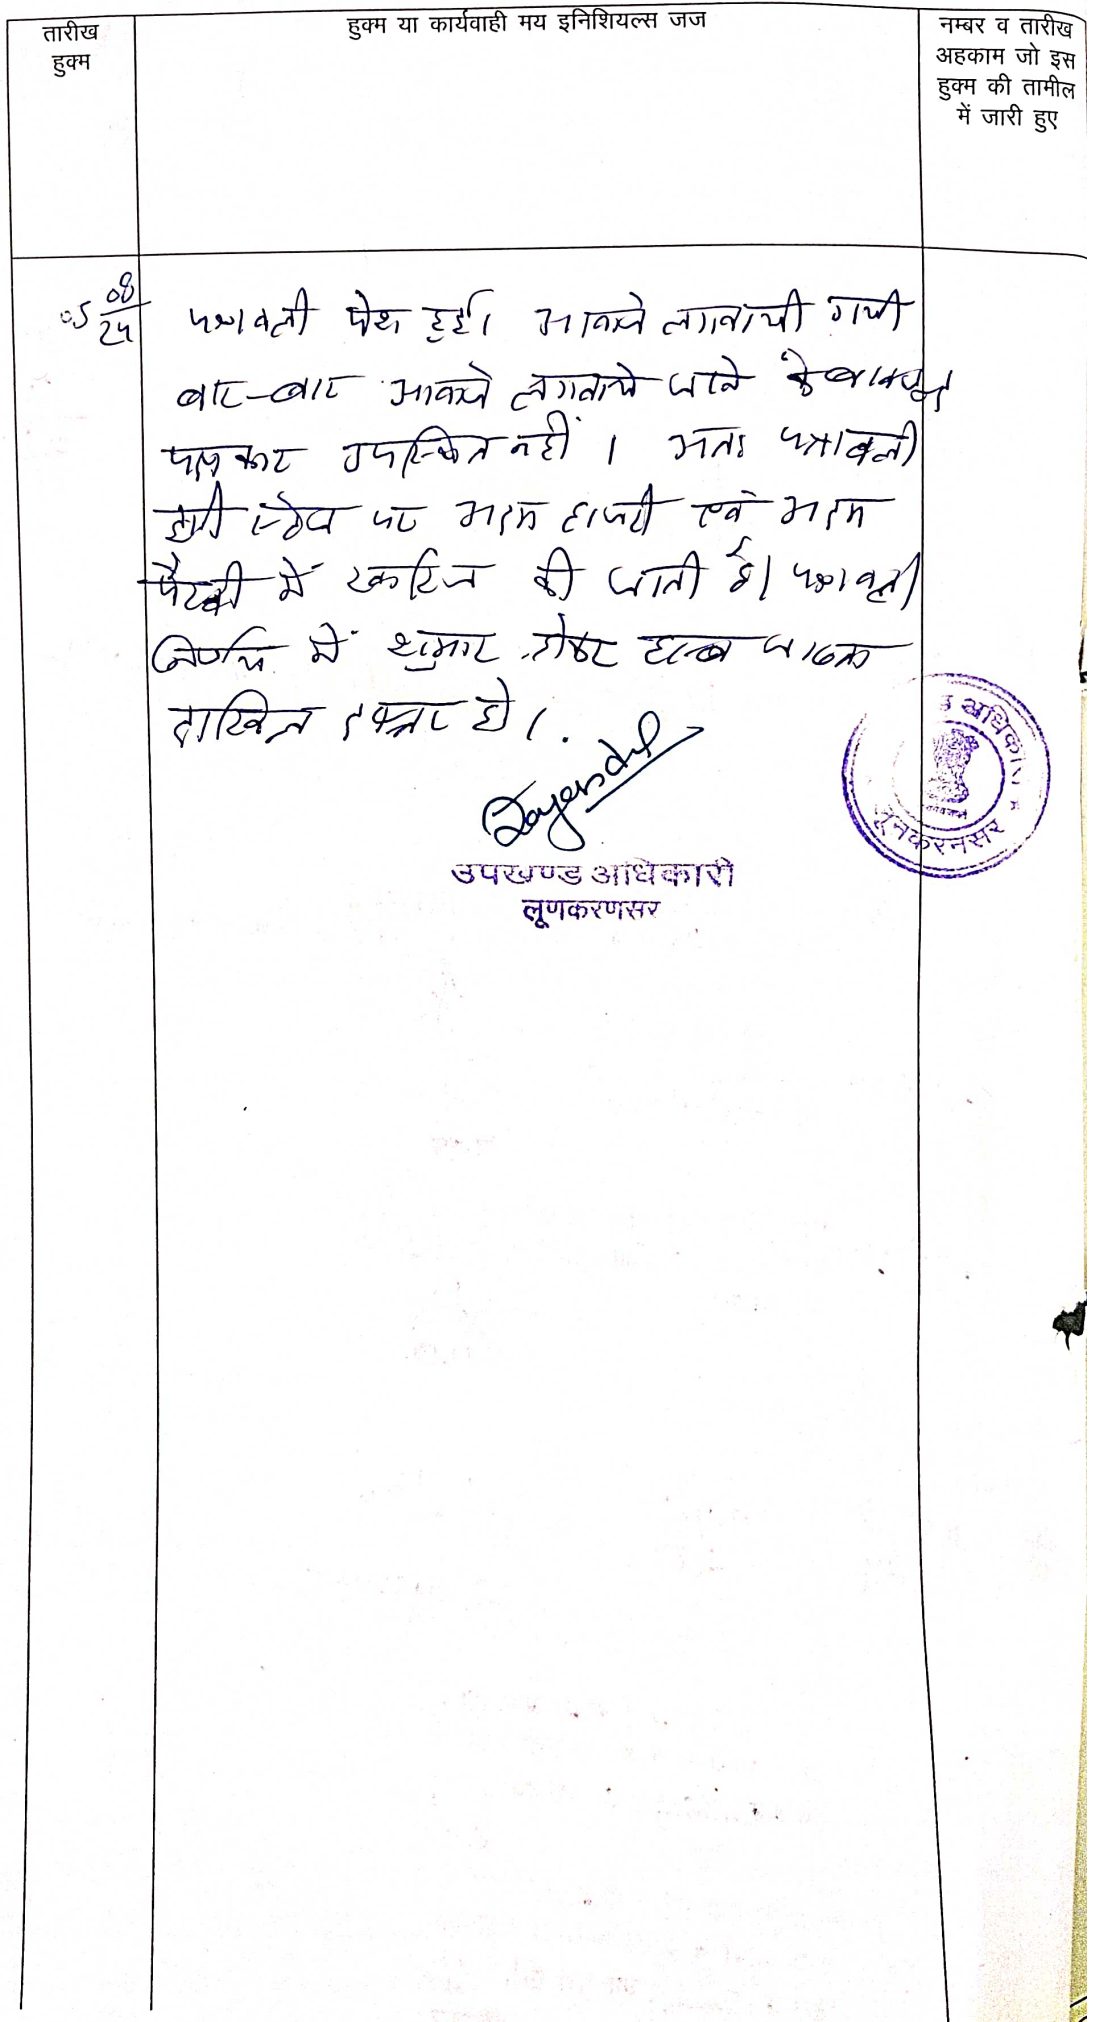 तारीख
हुक्म
हुक्म या कार्यवाही मय इनिशियल्स जज
नम्बर व तारीख
अहकाम जो इस
हुक्म की तामील
में जारी हुए
05 08/24
पत्रावली पेश हुई। आवाजे लगवायी गयी
बार-बार आवाजे लगवाये जाने के बावजूद
पक्षकार उपस्थित नहीं। अतः पत्रावली
इसी स्टेज पर अदम हाजरी एवं अदम
पैरवी में खारिज की जाती है। पत्रावली
निर्णय में शुमार होकर हस्ब जाब्ता
दाखिल दफ्तर हो।
उपखण्ड अधिकारी
लूणकरणसर
अधिकारी
लूनकरनसर